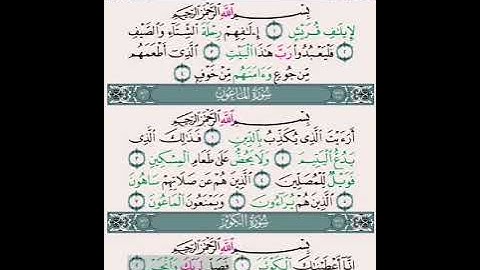 بِسْمِ اللَّهِ الرَّحْمَٰنِ الرَّحِيمِ
لِإِيلَافِ قُرَيْشٍ ١ إِۦلَافِهِمْ رِحْلَةَ الشِّتَاءِ وَالصَّيْفِ
٢ فَلْيَعْبُدُوا رَبَّ هَٰذَا الْبَيْتِ ٣ الَّذِي أَطْعَمَهُم
مِّن جُوعٍ وَءَامَنَهُم مِّنْ خَوْفٍ ٤
سُورَةُ الْمَاعُونِ
بِسْمِ اللَّهِ الرَّحْمَٰنِ الرَّحِيمِ
أَرَءَيْتَ الَّذِي يُكَذِّبُ بِالدِّينِ ١ فَذَٰلِكَ الَّذِي
يَدُعُّ الْيَتِيمَ ٢ وَلَا يَحُضُّ عَلَىٰ طَعَامِ الْمِسْكِينِ ٣
فَوَيْلٌ لِّلْمُصَلِّينَ ٤ الَّذِينَ هُمْ عَن صَلَاتِهِمْ سَاهُونَ
٥ الَّذِينَ هُمْ يُرَاءُونَ ٦ وَيَمْنَعُونَ الْمَاعُونَ ٧
سُورَةُ الْكَوْثَرِ
بِسْمِ اللَّهِ الرَّحْمَٰنِ الرَّحِيمِ
إِنَّا أَعْطَيْنَاكَ الْكَوْثَرَ ١ فَصَلِّ لِرَبِّكَ وَانْحَرْ